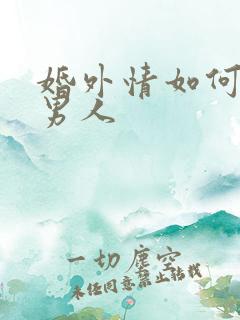 婚外情如何
男人
一切尘空
未经同意禁止转载